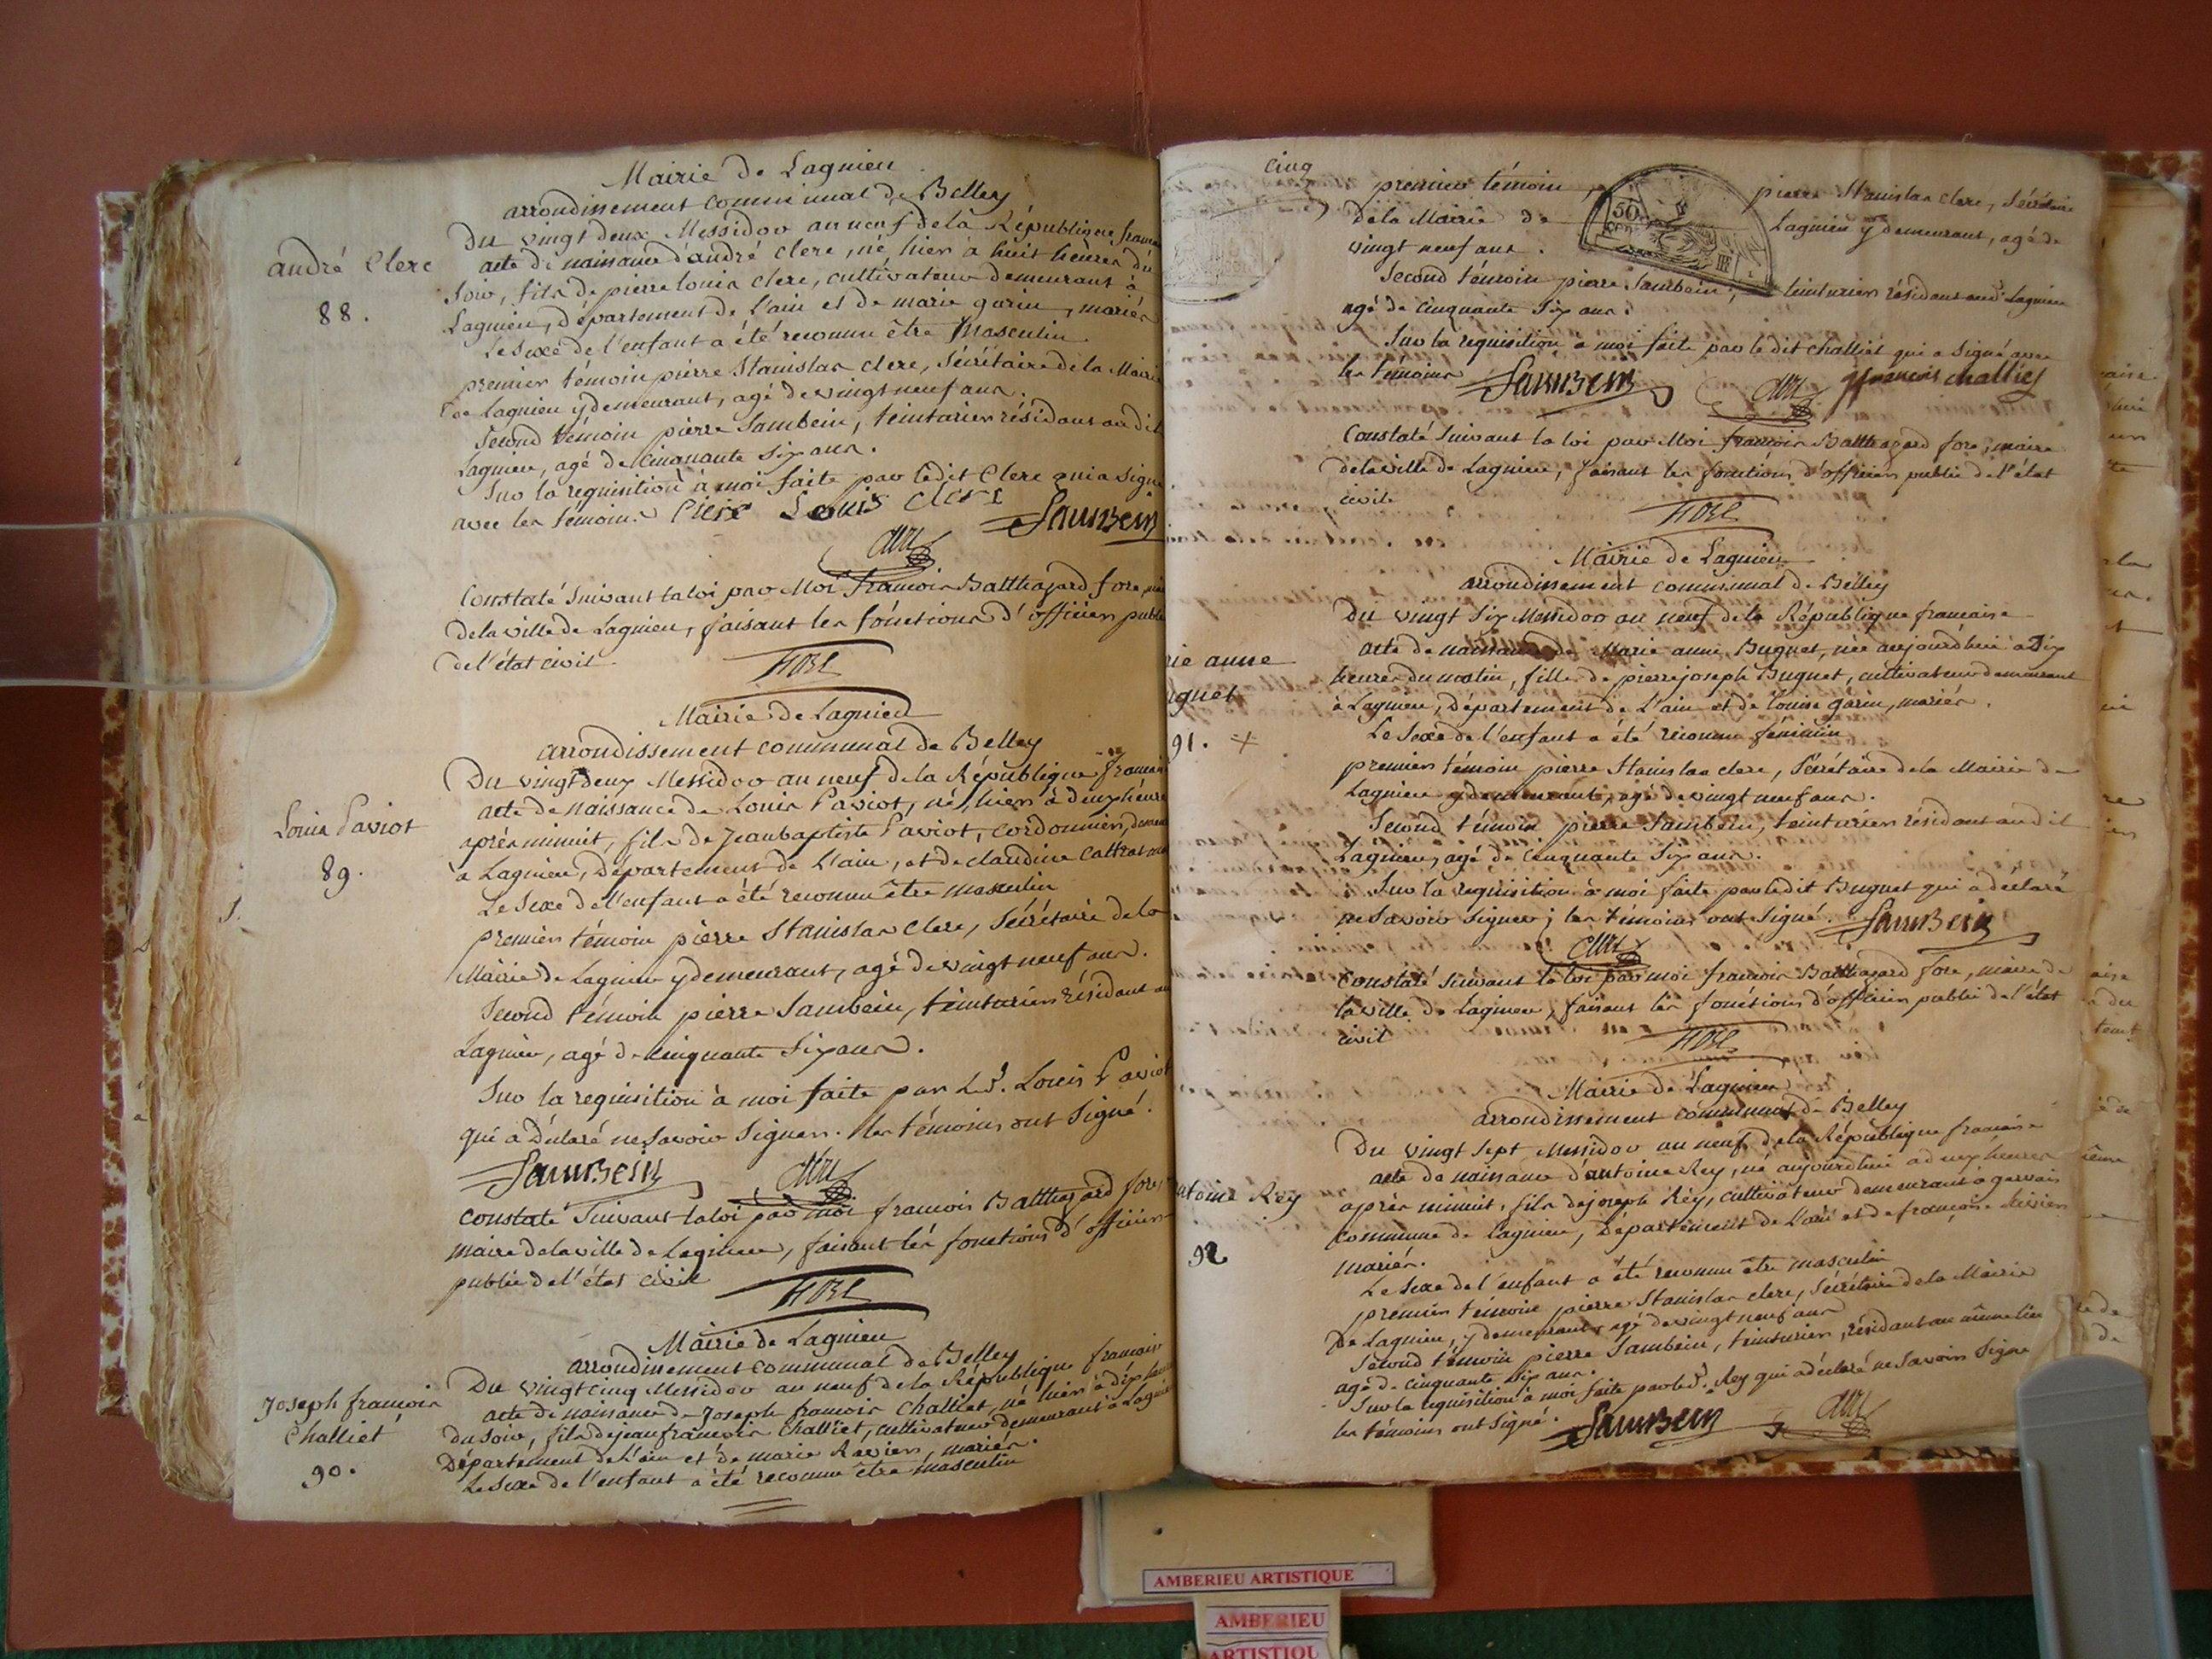 Mairie de Lagnieu
arrondissement communal de Belley
Du vingt deux Messidor an neuf de la République
andré Clerc
acte de naissance d'andré clerc, né hier à huit heures du
Soir, fils de pierre louis clerc, cultivateur demeurant à
88.
Lagnieu, département de l'ain et de marie garin, mariés
Le Sexe de l'enfant a été reconnu être Masculin
premier témoin pierre Stanislas clerc, Sécrétaire de la Mairie
de lagnieu y demeurant, agé de vingt neuf ans.
Second témoin pierre Sambein, teinturier résidant au dit
Lagnieu, agé de cinquante Six ans.
Sur la requisition à moi faite par ledit Clerc qui a Signé
avec les témoins Piere Louis Clerc Sambein
Constaté Suivant la loi par Moi francois Balthazard fore
de la ville de Lagnieu, faisant les fonctions d'officier public
de l'état civil
Mairie de Lagnieu
arrondissement communal de Belley
Du vingt deux Messidor an neuf de la République
acte de Naissance de Louis Paviot, né hier à deux heures
Louis Paviot
après minuit, fils de Jean baptiste Paviot, cordonnier,
89.
à Lagnieu, Département de L'ain, et de claudine
Le Sexe de l'enfant a été reconnu être masculin
premier témoin pierre Stanislas Clerc, Sécrétaire de la
Mairie de Lagnieu y demeurant, agé de vingt neuf ans.
Second témoin pierre Sambein, teinturier résidant au
Lagnieu, agé de cinquante Six ans.
Sur la requisition à moi faite par Le d. Louis Paviot
qui a Déclaré ne Savoir Signer. les témoins ont Signé.
Sambein
Constaté Suivant la loi par moi francois Balthazard fore,
maire de la ville de Lagnieu, faisant les fonctions d'officier
public de l'état civil
Mairie de Lagnieu
arrondissement communal de Belley
Du vingt cinq Messidor an neuf de la République francaise
Joseph francois
Challiet
acte de naissance de Joseph francois Challiet, né hier à dix heures
du soir, fils de jean francois Challiet, cultivateur demeurant à Lagnieu
90.
Département de l'ain et de marie Ravier, mariés.
Le Sexe de l'enfant a été reconnu être masculin
cinq
premier témoin pierre Stanislas clerc, Sécrétaire
de la Mairie de Lagnieu y demeurant, agé de
vingt neuf ans.
50
CEN
Second témoin pierre Sambein, teinturier résidant aud. Lagnieu
agé de cinquante Six ans.
Sur la requisition à moi faite par le dit Challiet qui a Signé avec
les témoins Sambein francois challiet
Constaté Suivant la loi par Moi francois Balthazard fore, maire
de la ville de Lagnieu, faisant les fonctions d'officier public de l'état
civil
Mairie de Lagnieu
arrondissement communal de Belley
Du vingt Six Messidor an neuf de la République francaise
rie anne
uguet
acte de naissance de Marie anne Buguet, née aujourd'hui à Dix
heures du matin, fille de pierre joseph Buguet, cultivateur demeurant
à Lagnieu, Département de L'ain et de louise garin, mariés.
91. +
Le Sexe de l'enfant a été reconnu féminin
premier témoin pierre Stanislas clerc, Sécrétaire de la Mairie de
Lagnieu y demeurant, agé de vingt neuf ans.
Second témoin pierre Sambein, teinturier résidant au dit
Lagnieu, agé de cinquante Six ans.
Sur la requisition à moi faite par ledit Buguet qui a déclaré
ne Savoir Signer; les témoins ont Signé. Sambein
Constaté Suivant la loi par moi francois Balthazard fore, maire de
la ville de Lagnieu, faisant les fonctions d'officier public de l'état
civil
Mairie de Lagnieu
arrondissement communal de Belley
Du vingt Sept Messidor an neuf de la République francaise
acte de naissance d'antoine Rey, né aujourdhui à deux heures
ntoine Rey
après minuit, fils de joseph Rey, cultivateur demeurant à
92
commune de Lagnieu, Département de L'ain et de francoise
mariés.
Le Sexe de l'enfant a été reconnu être masculin
premier témoin pierre Stanislas clerc, Sécrétaire de la Mairie
de Lagnieu, y demeurant, agé de vingt neuf ans
Second témoin pierre Sambein, teinturier, résidant au même lieu
agé de cinquante Six ans.
Sur la requisition à moi faite par le d. Rey qui a déclaré ne Savoir Signer
les témoins ont Signé. Sambein
AMBERIEU ARTISTIQUE
AMBERIEU
ARTISTIQU